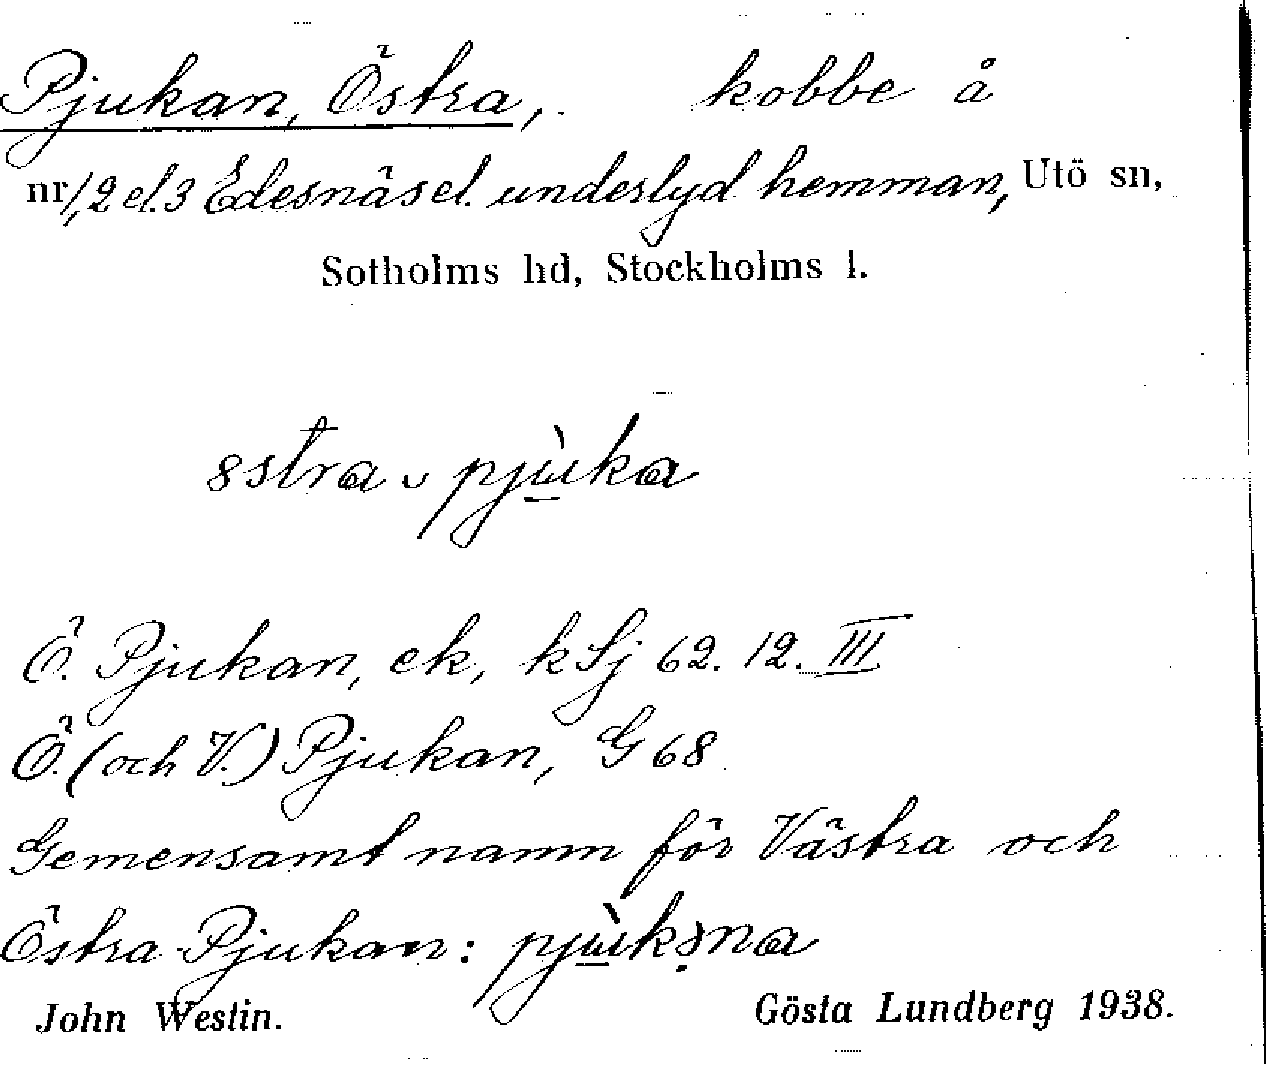 Pjukan, Östra, . kobbe å
nr 1, 2 el. 3 Edesnäs el. underlyd hemman, Utö sn,
Sotholms hd, Stockholms l.
östra ᴗ pjùka
Ö. Pjukan, ek, kSj 62. 12. III
Ö. (och V.) Pjukan, G 68
Gemensamt namn för Västra och
Östra Pjukan: pjùkəna
John Westin. Gösta Lundberg 1938.